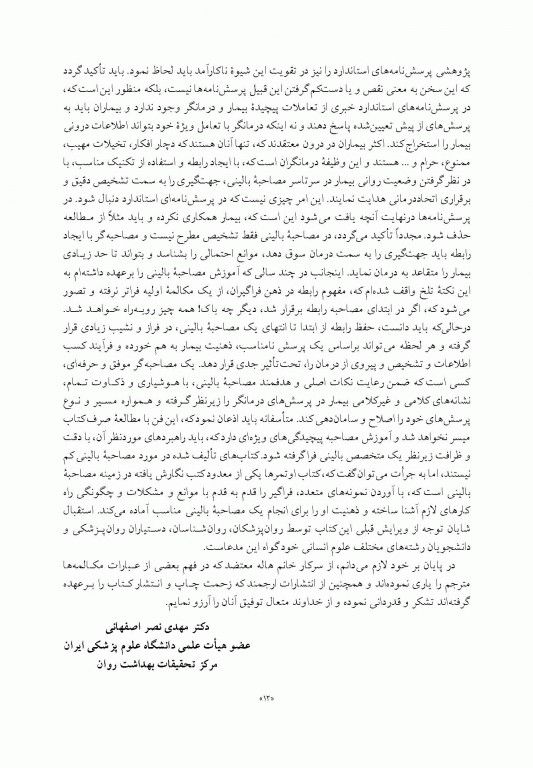 پژوهشی پرسش‌نامه‌های استاندارد را نیز در تقویت این شیوهٔ ناکارآمد باید لحاظ نمود. باید تأکید گردد
که این سخن به معنی نقص و یا دست‌کم گرفتن این قبیل پرسش‌نامه‌ها نیست، بلکه منظور این است که،
در پرسش‌نامه‌های استاندارد خبری از تعاملات پیچیدهٔ بیمار و درمانگر وجود ندارد و بیماران باید به
پرسش‌های از پیش تعیین‌شده پاسخ دهند و نه اینکه درمانگر با تعامل ویژهٔ خود بتواند اطلاعات درونی
بیمار را استخراج کند. اکثر بیماران در درون معتقدند که، تنها آنان هستند که دچار افکار، تخیلات مهیب،
ممنوع، حرام و ... هستند و این وظیفهٔ درمانگران است که، با ایجاد رابطه و استفاده از تکنیک مناسب، با
در نظر گرفتن وضعیت روانی بیمار در سرتاسر مصاحبهٔ بالینی، جهت‌گیری را به سمت تشخیص دقیق و
برقراری اتحاد درمانی هدایت نمایند. این امر چیزی نیست که در پرسش‌نامه‌های استاندارد دنبال شود. در
پرسش‌نامه‌ها درنهایت آنچه یافت می‌شود این است که، بیمار همکاری نکرده و باید مثلاً از مطالعه
حذف شود. مجدداً تأکید می‌گردد، در مصاحبهٔ بالینی فقط تشخیص مطرح نیست و مصاحبه‌گر با ایجاد
رابطه باید جهت‌گیری را به سمت درمان سوق دهد، موانع احتمالی را بشناسد و بتواند تا حد زیادی
بیمار را متقاعد به درمان نماید. اینجانب در چند سالی که آموزش مصاحبهٔ بالینی را برعهده داشته‌ام به
این نکتهٔ تلخ واقف شده‌ام که، مفهوم رابطه در ذهن فراگیران، از یک مکالمهٔ اولیه فراتر نرفته و تصور
می‌شود که، اگر در ابتدای مصاحبه رابطه برقرار شد، دیگر چه باک! همه چیز روبه‌راه خواهد شد.
درحالی‌که باید دانست، حفظ رابطه از ابتدا تا انتهای یک مصاحبهٔ بالینی، در فراز و نشیب زیادی قرار
گرفته و هر لحظه می‌تواند براساس یک پرسش نامناسب، ذهنیت بیمار به هم خورده و فرآیند کسب
اطلاعات و تشخیص و پیروی از درمان را، تحت‌تأثیر جدی قرار دهد. یک مصاحبه‌گر موفق و حرفه‌ای،
کسی است که ضمن رعایت نکات اصلی و هدفمند مصاحبهٔ بالینی، با هوشیاری و ذکاوت تمام،
نشانه‌های کلامی و غیرکلامی بیمار در پرسش‌های درمانگر را زیرنظر گرفته و همواره مسیر و نوع
پرسش‌های خود را اصلاح و سامان‌دهی کند. متأسفانه باید اذعان نمود که، این فن با مطالعهٔ صرف کتاب
میسر نخواهد شد و آموزش مصاحبه پیچیدگی‌های ویژه‌ای دارد که، باید راهبردهای موردنظر آن، با دقت
و ظرافت زیرنظر یک متخصص بالینی فراگرفته شود. کتاب‌های تألیف شده در مورد مصاحبهٔ بالینی کم
نیستند، اما به جرأت می‌توان گفت که، کتاب اوتمرها یکی از معدود کتب نگارش یافته در زمینه مصاحبهٔ
بالینی است که، با آوردن نمونه‌های متعدد، فراگیر را قدم به قدم با موانع و مشکلات و چگونگی راه
کارهای لازم آشنا ساخته و ذهنیت او را برای انجام یک مصاحبهٔ بالینی مناسب آماده می‌کند. استقبال
شایان توجه از ویرایش قبلی این کتاب توسط روان‌پزشکان، روان‌شناسان، دستیاران روان‌پزشکی و
دانشجویان رشته‌های مختلف علوم انسانی خود گواه این مدعاست.
در پایان بر خود لازم می‌دانم، از سرکار خانم هاله معتضد که در فهم بعضی از عبارات مکالمه‌ها
مترجم را یاری نموده‌اند و همچنین از انتشارات ارجمند که زحمت چاپ و انتشار کتاب را برعهده
گرفته‌اند تشکر و قدردانی نموده و از خداوند متعال توفیق آنان را آرزو نمایم.
دکتر مهدی نصر اصفهانی
عضو هیأت علمی دانشگاه علوم پزشکی ایران
مرکز تحقیقات بهداشت روان
«۱۲»